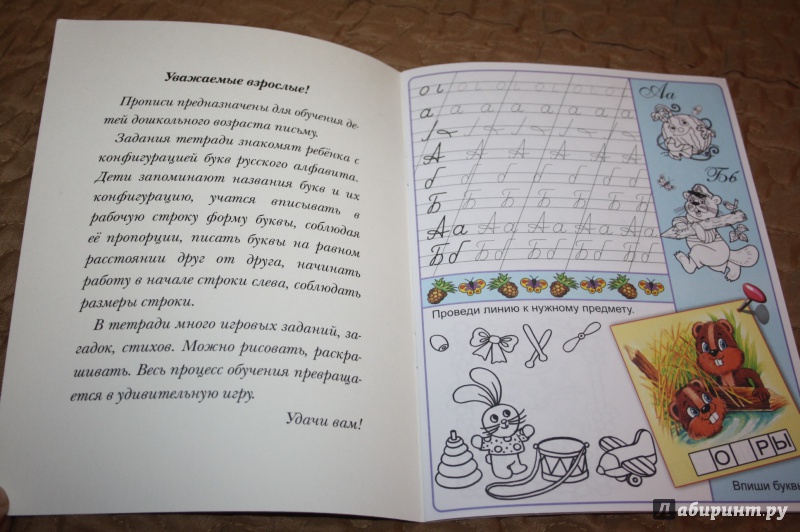 Уважаемые взрослые!
Прописи предназначены для обучения де-
тей дошкольного возраста письму.
Задания тетради знакомят ребёнка с
конфигурацией букв русского алфавита.
Дети запоминают названия букв и их
конфигурацию, учатся вписывать в
рабочую строку форму буквы, соблюдая
её пропорции, писать буквы на равном
расстоянии друг от друга, начинать
работу в начале строки слева, соблюдать
размеры строки.
В тетради много игровых заданий, за-
гадок, стихов. Можно рисовать, раскра-
шивать. Весь процесс обучения превраща-
ется в удивительную игру.
Удачи вам!
а а а а а а а
А А А А А А
б б б б б б б
Б Б Б Б Б Б
Аа Аа Аа Аа Аа
Бб Бб Бб Бб Бб
Аа
Бб
Проведи линию к нужному предмету.
О РЫ
Впиши буквы
Лабиринт.ру